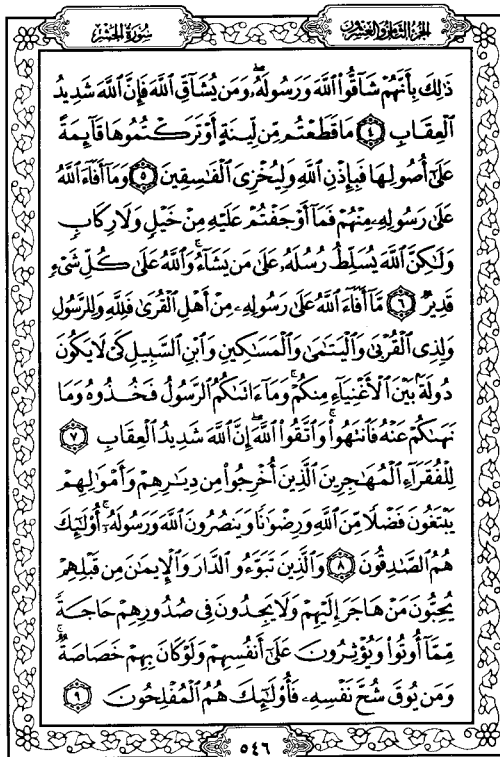 الجزء الثامن والعشرون
سورة الحشر
ذَٰلِكَ بِأَنَّهُمْ شَآقُّوا۟ ٱللَّهَ وَرَسُولَهُۥ ۖ وَمَن يُشَآقِّ ٱللَّهَ فَإِنَّ ٱللَّهَ شَدِيدُ
ٱلْعِقَابِ ٤ مَا قَطَعْتُم مِّن لِّينَةٍ أَوْ تَرَكْتُمُوهَا قَآئِمَةً
عَلَىٰٓ أُصُولِهَا فَبِإِذْنِ ٱللَّهِ وَلِيُخْزِىَ ٱلْفَـٰسِقِينَ ٥ وَمَآ أَفَآءَ ٱللَّهُ
عَلَىٰ رَسُولِهِۦ مِنْهُمْ فَمَآ أَوْجَفْتُمْ عَلَيْهِ مِنْ خَيْلٍ وَلَا رِكَابٍ
وَلَـٰكِنَّ ٱللَّهَ يُسَلِّطُ رُسُلَهُۥ عَلَىٰ مَن يَشَآءُ ۚ وَٱللَّهُ عَلَىٰ كُلِّ شَىْءٍ
قَدِيرٌ ٦ مَّآ أَفَآءَ ٱللَّهُ عَلَىٰ رَسُولِهِۦ مِنْ أَهْلِ ٱلْقُرَىٰ فَلِلَّهِ وَلِلرَّسُولِ
وَلِذِى ٱلْقُرْبَىٰ وَٱلْيَتَـٰمَىٰ وَٱلْمَسَـٰكِينِ وَٱبْنِ ٱلسَّبِيلِ كَىْ لَا يَكُونَ
دُولَةًۢ بَيْنَ ٱلْأَغْنِيَآءِ مِنكُمْ ۚ وَمَآ ءَاتَىٰكُمُ ٱلرَّسُولُ فَخُذُوهُ وَمَا
نَهَىٰكُمْ عَنْهُ فَٱنتَهُوا۟ ۚ وَٱتَّقُوا۟ ٱللَّهَ ۖ إِنَّ ٱللَّهَ شَدِيدُ ٱلْعِقَابِ ٧
لِلْفُقَرَآءِ ٱلْمُهَـٰجِرِينَ ٱلَّذِينَ أُخْرِجُوا۟ مِن دِيَـٰرِهِمْ وَأَمْوَٰلِهِمْ
يَبْتَغُونَ فَضْلًا مِّنَ ٱللَّهِ وَرِضْوَٰنًا وَيَنصُرُونَ ٱللَّهَ وَرَسُولَهُۥٓ ۚ أُو۟لَـٰٓئِكَ
هُمُ ٱلصَّـٰدِقُونَ ٨ وَٱلَّذِينَ تَبَوَّءُو ٱلدَّارَ وَٱلْإِيمَـٰنَ مِن قَبْلِهِمْ
يُحِبُّونَ مَنْ هَاجَرَ إِلَيْهِمْ وَلَا يَجِدُونَ فِى صُدُورِهِمْ حَاجَةً
مِّمَّآ أُوتُوا۟ وَيُؤْثِرُونَ عَلَىٰٓ أَنفُسِهِمْ وَلَوْ كَانَ بِهِمْ خَصَاصَةٌ ۚ
وَمَن يُوقَ شُحَّ نَفْسِهِۦ فَأُو۟لَـٰٓئِكَ هُمُ ٱلْمُفْلِحُونَ ٩
٥٤٦